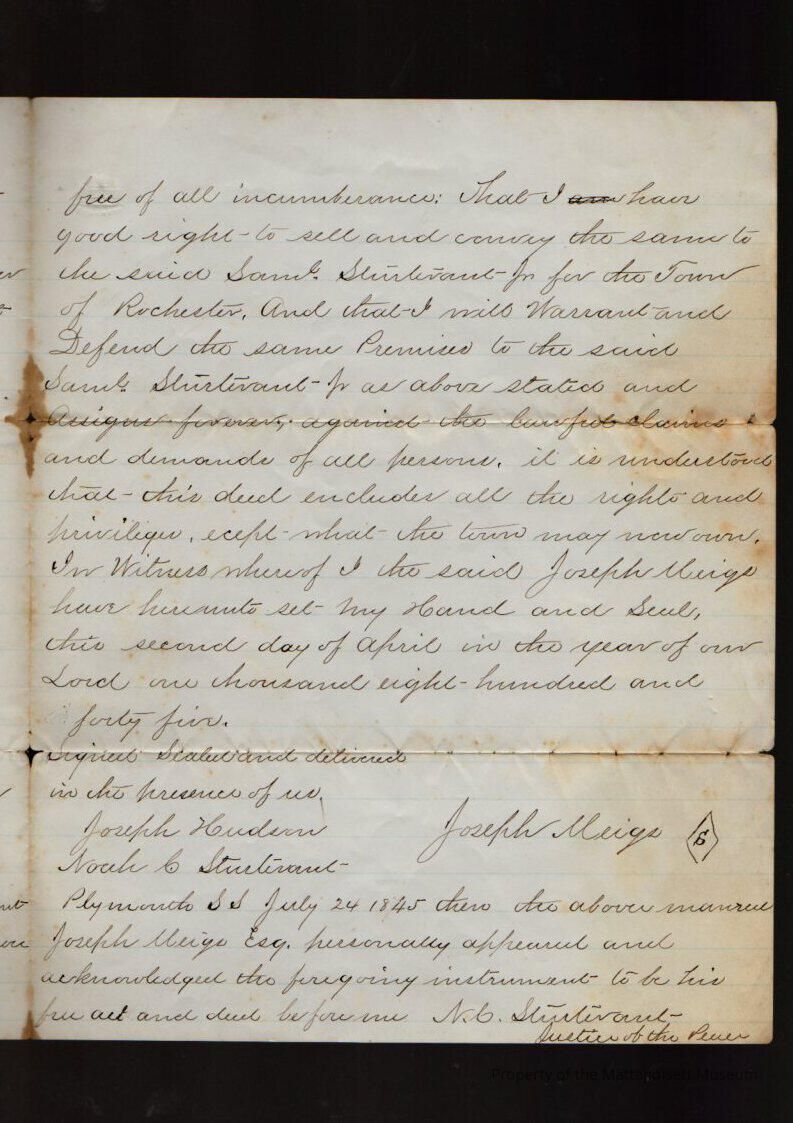 free of all incumberance: That I am have
good right to sell and convey the same to
the said Saml. Sturtevant Jr for the Town
of Rochester, And that I will Warrant and
Defend the same Premises to the said
Saml. Sturtevant Jr as above stated and
Assigns forever, against the lawful claims
and demands of all persons. it is understood
that this deed encludes all the rights and
privileges, ecept what the town may now own.
In Witness whereof I the said Joseph Meigs
have hereunto set my Hand and Seal,
this second day of April in the year of our
Lord one thousand eight hundred and
forty five.
Signed Sealed and delivered
in the presence of us.
Joseph Hudson
Joseph Meigs S
Noah C Sturtevant
Plymouth SS July 24 1845 then the above
Joseph Meigs Esq. personally appeared and
acknowledged the foregoing instrument to be his
free act and deed before me N. C. Sturtevant
Justice of the Peace
Property of the Mattapoisett Museum